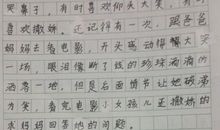 哭鼻子，有时喜欢仰头大笑，有时
喜欢撒娇。还记得有一次，跟爸爸
妈妈去看电影，开头感动得嚎大哭
一场，眼泪像断了线的珍珠滴滴的
洒落一地，但是后面情节让她破涕
为笑，看完电影小女孩儿还撒娇的
求妈妈回答她的问题。